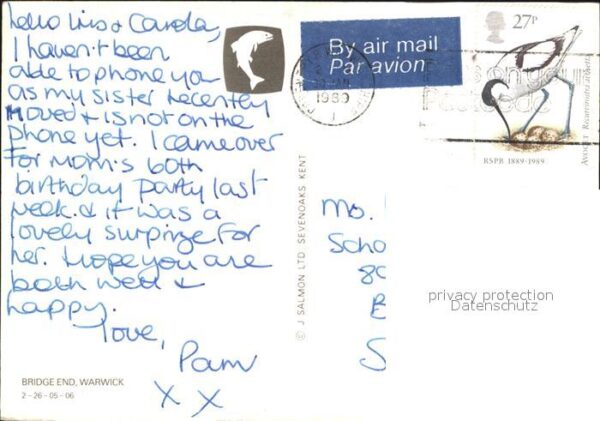 Hello Iris & Carola,
I haven't been
able to phone you
as my sister recently
moved & is not on the
phone yet. I came over
for Mom's 60th
birthday party last
week. & it was a
lovely surprize for
her. Hope you are
both well &
happy.
love,
Pam
X X
BRIDGE END, WARWICK
2-26-05-06
© J SALMON LTD SEVENOAKS KENT
By air mail
Par avion
1989
27P
RSPB 1889-1989
Avocet Recurvirostra avosetta
Mo.
Scho
80
E
S
privacy protection
Datenschutz